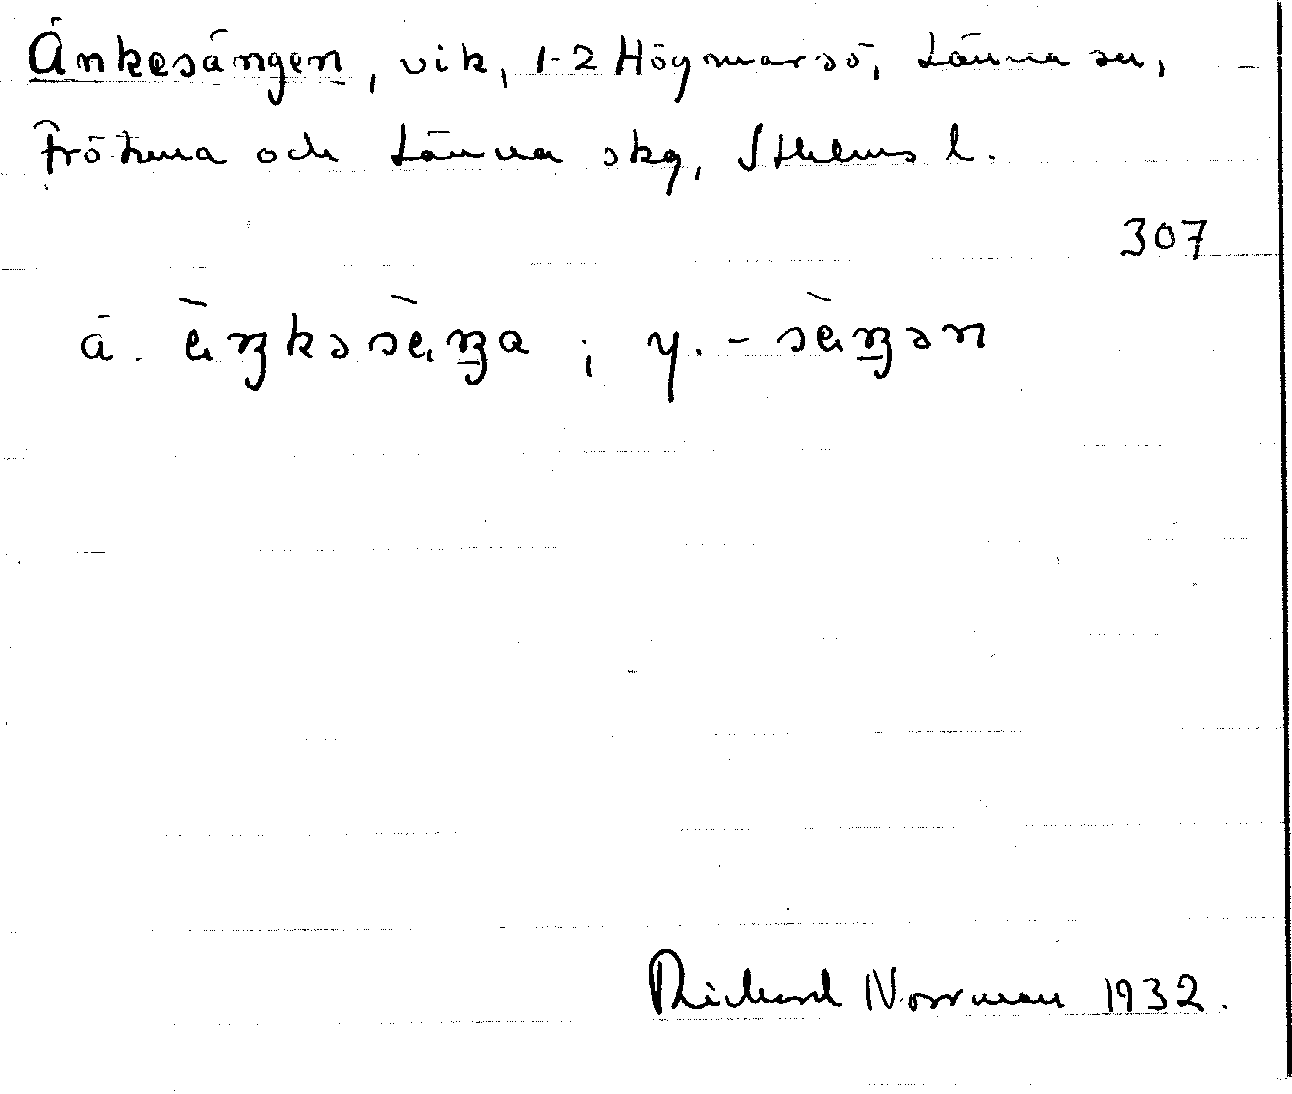 Änkesängen, vik, 1-2 Högmarsö, Länna sn,
Frötuna och Länna skg, Sthlms l.
307
ä. ὲŋkəsὲŋa ; y. - sὲŋən
Richard Norrman 1932.